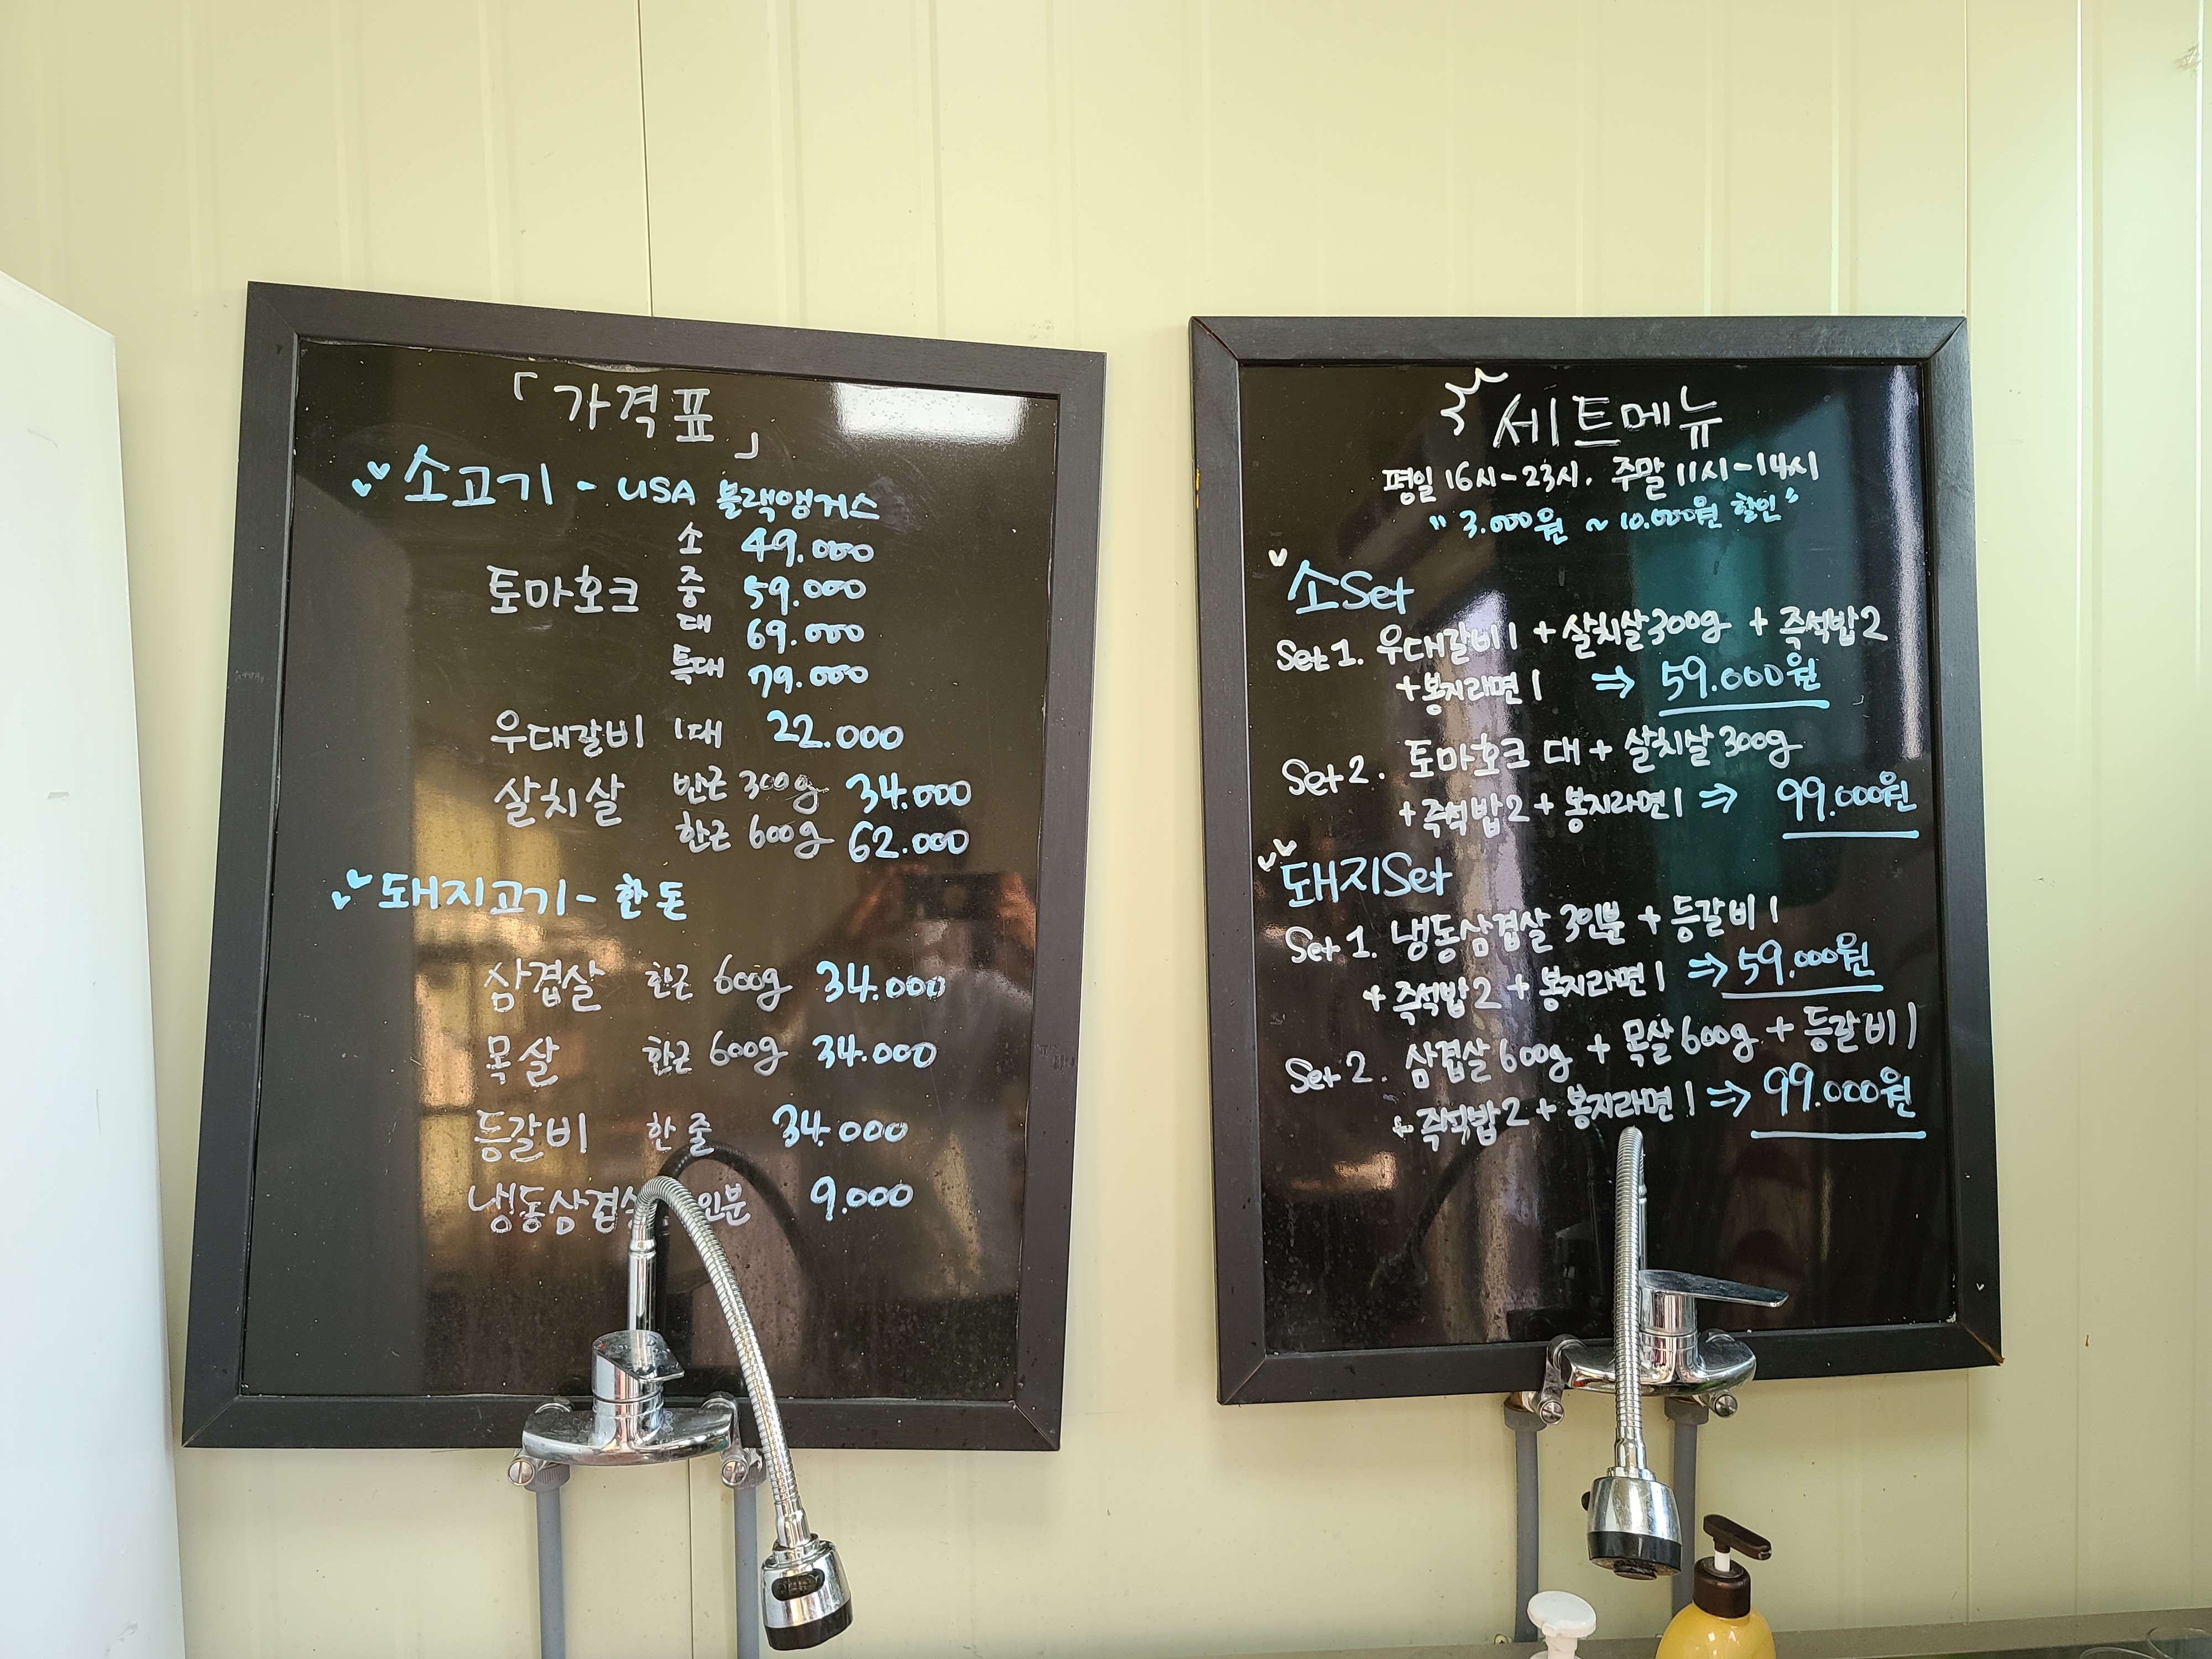 「가격표」
소고기 - USA 블랙앵거스
소 49.000
토마호크 중 59.000
대 69.000
특대 79.000
우대갈비 1대 22.000
살치살 반근 300g 34.000
한근 600g 62.000
돼지고기 - 한돈
삼겹살 한근 600g 34.000
목살 한근 600g 34.000
등갈비 한줄 34.000
냉동삼겹 인분 9.000
세트메뉴
평일 16시-23시. 주말 11시-14시
" 3.000원 ~ 10.000원 할인 "
소Set
Set 1. 우대갈비 1 + 살치살 300g + 즉석밥 2
+ 봉지라면 1 ⇒ 59.000원
Set 2. 토마호크 대 + 살치살 300g
+ 즉석밥 2 + 봉지라면 1 ⇒ 99.000원
돼지Set
Set 1. 냉동삼겹살 3인분 + 등갈비 1
+ 즉석밥 2 + 봉지라면 1 ⇒ 59.000원
Set 2. 삼겹살 600g + 목살 600g + 등갈비 1
+ 즉석밥 2 + 봉지라면 1 ⇒ 99.000원